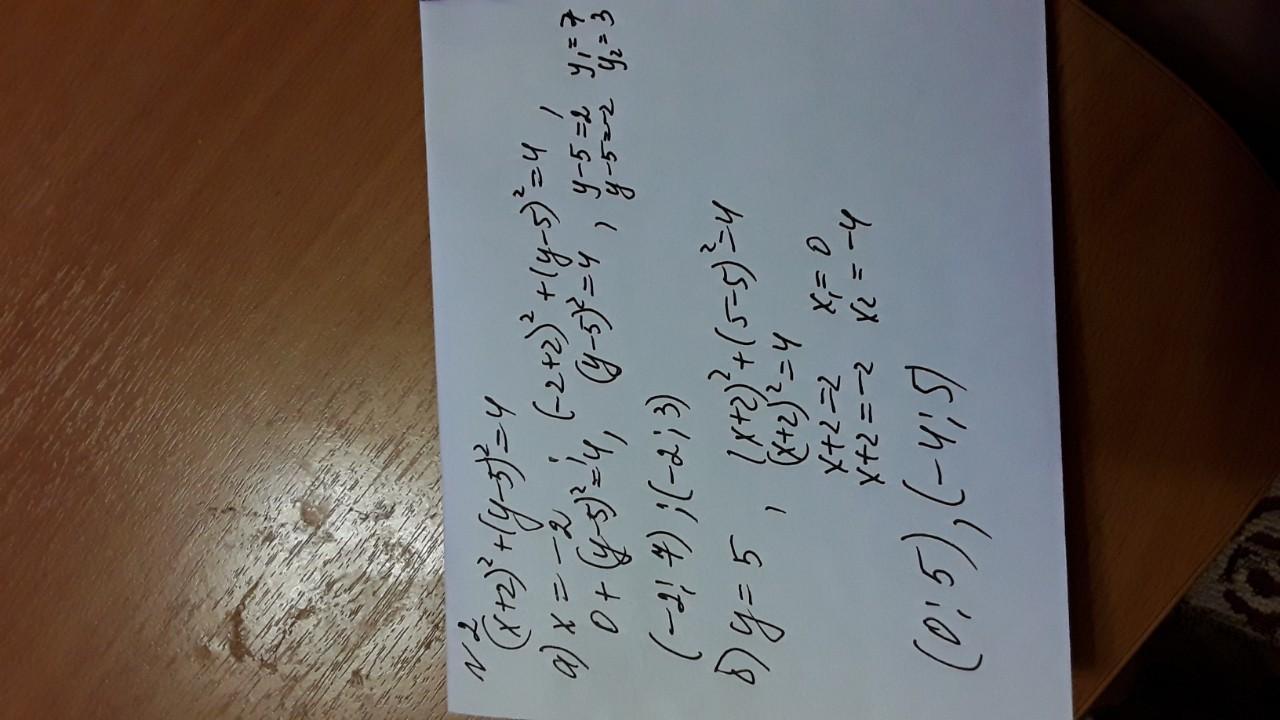 №2
(x+2)²+(y-5)²=4
а) x=-2; (-2+2)²+(y-5)²=4,
0+(y-5)²=4, (y-5)²=4, y-5=2 y₁=7
y-5=-2 y₂=3
(-2;7);(-2;3)
б) y=5, (x+2)²+(5-5)²=4
(x+2)²=4
x+2=2 x₁=0
x+2=-2 x₂=-4
(0;5),(-4;5)